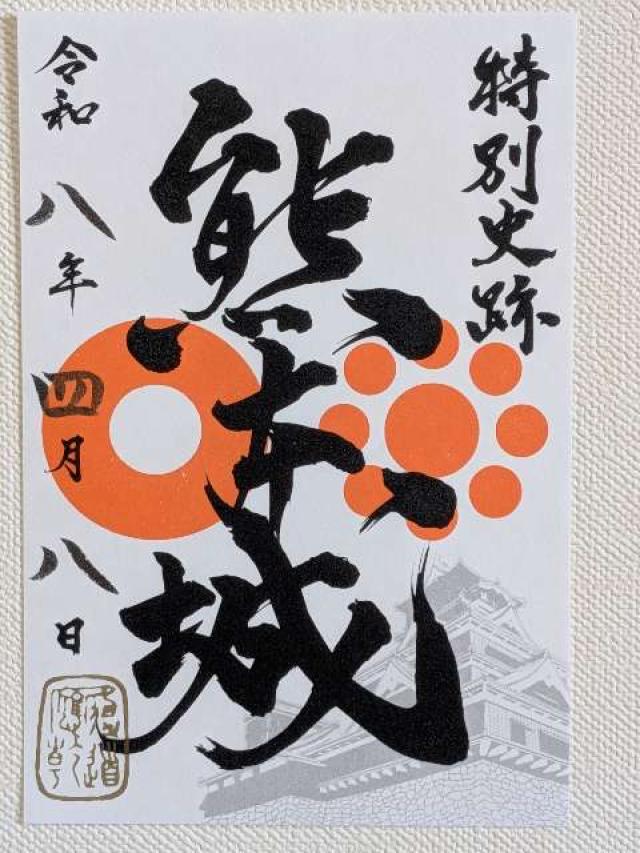 特別史跡
熊本城
令和八年四月八日